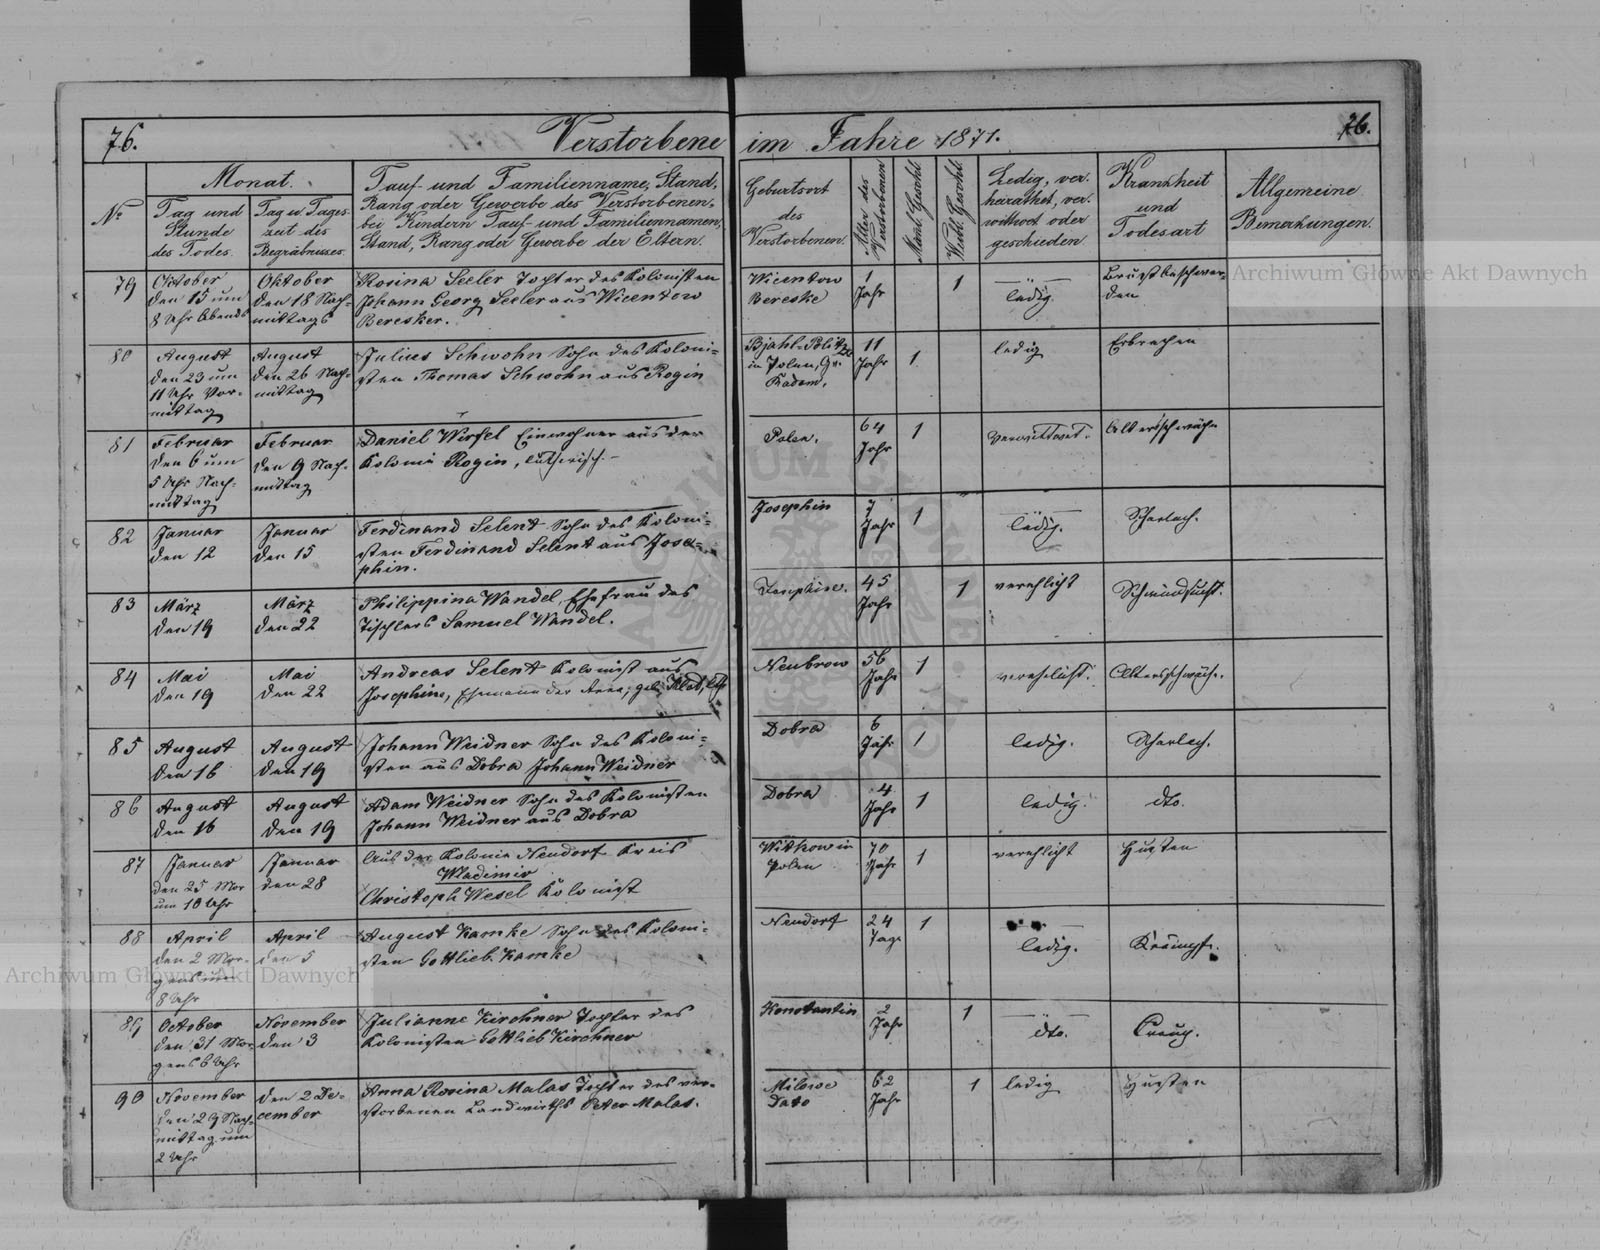 76.
Verstorbene im Jahre 1871.
76.
No
Monat.
Tag und
Stunde
des Todes.
Tag u. Tages-
zeit des
Begräbnisses.
Tauf- und Familienname, Stand,
Rang oder Gewerbe des Verstorbenen,
bei Kindern Tauf- und Familiennamen,
Stand, Rang oder Gewerbe der Eltern.
Geburtsort
des
Verstorbenen.
Alter des
Verstorbenen
Mänl. Geschl.
Weibl. Geschl.
Ledig, ver-
heirathet, ver-
wittwet oder
geschieden
Krankheit
und
Todesart
Allgemeine
Bemerkungen.
79
Oktober
den 15 um
8 Uhr Abends
Oktober
den 18 Nach-
mittags
Rosina Seeler Tochter des Kolonisten
Johann Georg Seeler aus Wicentow
Beresker.
Wicentow
Bereske
1
Jahr
1
ledig.
Brustbeschwer-
den
80
August
den 23 um
11 Uhr Vor-
mittag
August
den 26 Nach-
mittag
Julius Schwohn Sohn des Koloni-
sten Thomas Schwohn aus Rogin
in Polen, Gv.
Radom.
11
Jahr
1
ledig
Erbrechen
81
Februar
den 6 um
5 Uhr Nach-
mittag
Februar
den 9 Nach-
mittag
Daniel Wirfel Einwohner aus der
Kolonie Rogin, lutherisch.
Polen.
64
Jahr
1
verwittwet.
Altersschwäche
82
Januar
den 12
Januar
den 15
Ferdinand Selent Sohn des Koloni-
sten Ferdinand Selent aus Jose-
phin.
Josephin
7
Jahr
1
ledig.
Scharlach.
83
März
den 19
März
den 22
Philippina Wandel, Ehefrau des
Tischlers Samuel Wandel.
45
Jahr
1
verehlicht
Schwindsucht.
84
Mai
den 19
Mai
den 22
Andreas Selent Kolonist aus
Josephine, Ehemann der Anna, geb.
Neubrow
56
Jahr
1
verehlicht.
Altersschwäche.
85
August
den 16
August
den 19
Johann Weidner Sohn des Koloni-
sten aus Dobra Johann Weidner
Dobra
6
Jahr
1
ledig.
Scharlach.
86
August
den 16
August
den 19
Adam Weidner Sohn des Kolonisten
Johann Weidner aus Dobra
Dobra
4
Jahr
1
ledig.
dto.
87
Januar
den 25 Mor
um 10 Uhr
Januar
den 28
Aus der Kolonie Neudorf Kreis
Wladimir
Christoph Wesel Kolonist
Witkow in
Polen
70
Jahr
1
verehlicht
Husten
88
April
den 2 Mor-
gens um
8 Uhr
April
den 5
August Kamke Sohn des Koloni-
sten Gottlieb Kamke
Neudorf
24
Tage
1
ledig.
Krämpfe.
89
October
den 31 Mor-
gens 6 Uhr
November
den 3
Julianne Kirchner Tochter des
Kolonisten Gottlieb Kirchner
Konstantin
2
Jahr
1
dto.
90
November
den 29 Nach-
mittag um
2 Uhr
den 2 De-
cember
Anna Rosina Malas Tochter des ver-
storbenen Landwirths Peter Malas.
62
Jahr
1
ledig
Husten
Archiwum Główne Akt Dawnych
Archiwum Główne Akt Dawnych